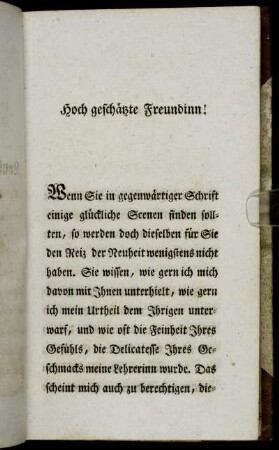 Hoch geschätzte Freundinn!
Wenn Sie in gegenwärtiger Schrift
einige glückliche Scenen finden soll-
ten, so werden doch dieselben für Sie
den Reiz der Neuheit wenigstens nicht
haben. Sie wissen, wie gern ich mich
davon mit Ihnen unterhielt, wie gern
ich mein Urtheil dem Ihrigen unter-
warf, und wie oft die Feinheit Ihres
Gefühls, die Delicatesse Ihres Ge-
schmacks meine Lehrerinn wurde. Das
scheint mich auch zu berechtigen, die-